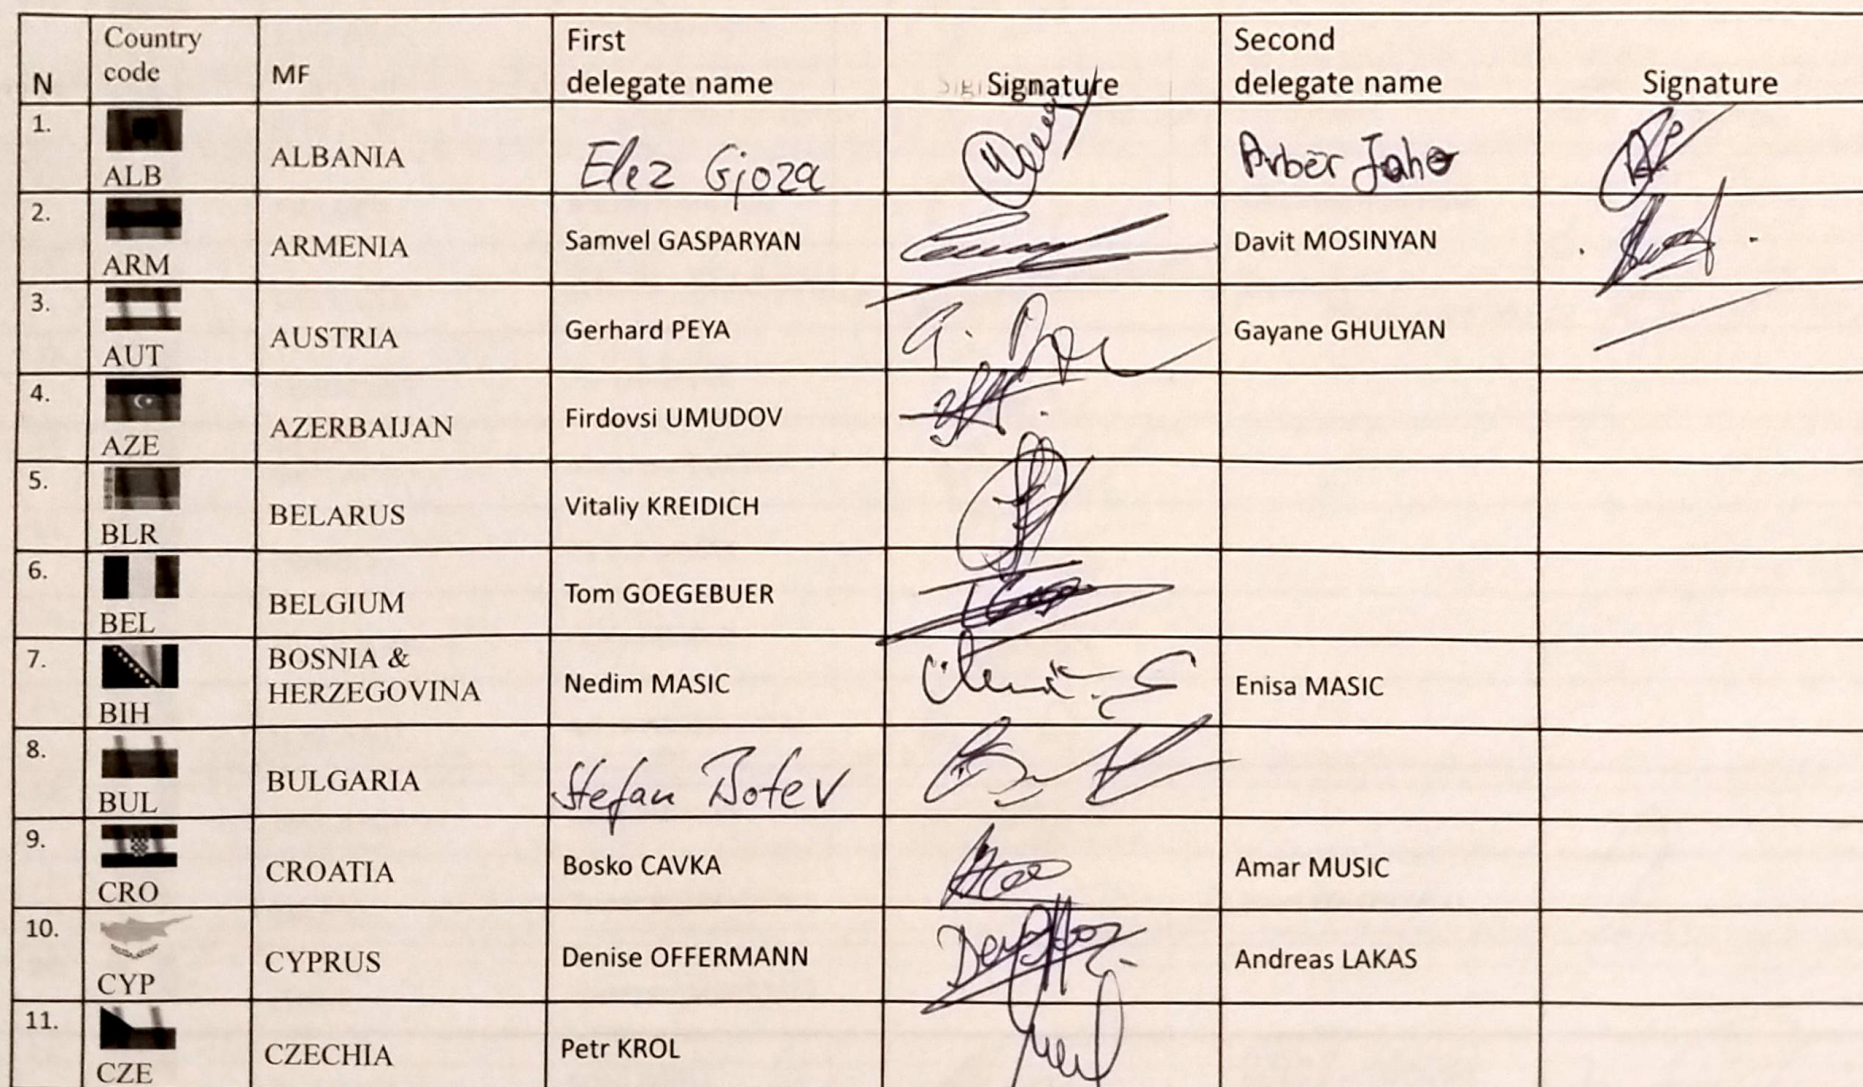 N Country code MF First delegate name Signature Second delegate name Signature
1. ALB ALBANIA Elez Gjoza Arbër Jaho
2. ARM ARMENIA Samvel GASPARYAN Davit MOSINYAN
3. AUT AUSTRIA Gerhard PEYA Gayane GHULYAN
4. AZE AZERBAIJAN Firdovsi UMUDOV
5. BLR BELARUS Vitaliy KREIDICH
6. BEL BELGIUM Tom GOEGEBUER
7. BIH BOSNIA & HERZEGOVINA Nedim MASIC Enisa MASIC
8. BUL BULGARIA Stefan Botev
9. CRO CROATIA Bosko CAVKA Amar MUSIC
10. CYP CYPRUS Denise OFFERMANN Andreas LAKAS
11. CZE CZECHIA Petr KROL